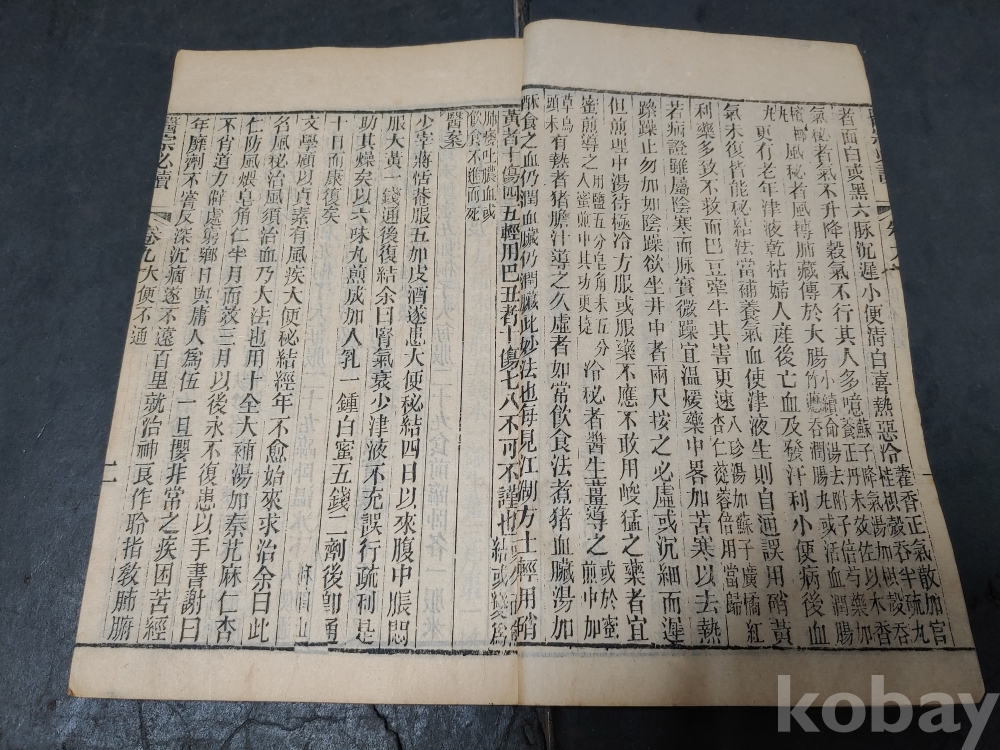 者面白或黑六脉沉遲小便清白喜熱惡冷藿香正氣散加官桂枳殼吞半硫丸
氣秘者氣不升降穀氣不行其人多噫蘇子降氣湯加枳殼吞養正丹未效佐以木香
檳榔風秘者風搏肺藏傳於大腸小續命湯去附子倍芍藥加竹瀝吞潤腸丸或活血潤腸
丸更有老年津液乾枯婦人産後亡血及發汗利小便病後血
氣未復皆能秘結法當補養氣血使津液生則自通誤用硝黃
利藥多致不救而巴豆牽牛其害更速八珍湯加蘇子廣橘紅杏仁從蓉倍用當歸
若病證雖屬陰寒而脉實微躁宜溫煖藥中畧加苦寒以去熱
躁躁止勿加如陰躁欲坐井中者兩尺按之必虛或沉細而遲
但煎理中湯待極冷方服或服藥不應不敢用峻猛之藥者宜
蜜煎導之用鹽五分皂角末五分入蜜煎中其功更捷冷秘者醬生薑導之或於蜜煎中加
草烏頭末有熱者猪膽汁導之久虛者如常飲食法煮猪血臟湯加
酥食之血仍潤血臟仍潤臟此妙法也每見江湖方士輕用硝
黃者十傷四五輕用巴丑者十傷七八不可不謹也
肺癰吐膿血或飲食不進而死
醫案
少宰蔣恬菴服五加皮酒遂患大便秘結四日以來腹中脹悶
服大黃一錢通後復結余曰腎氣衰少津液不充誤行疏利是
助其燥矣以六味丸煎成加人乳一鍾白蜜五錢二劑後即通
十日而康復矣
文學顧以貞素有風疾大便秘結經年不愈始來求治余曰此
名風秘治風須治血乃大法也用十全大補湯加秦艽麻仁杏
仁防風煨皂角仁半月而效三月以後永不復患以手書謝曰
不肖道力僻處窮鄉日與庸人為伍一旦攖非常之疾困苦經
年靡劑不嘗反深沉痼遂不遠百里就治神良作聆指教肺腑
醫宗必讀
卷九大便不通